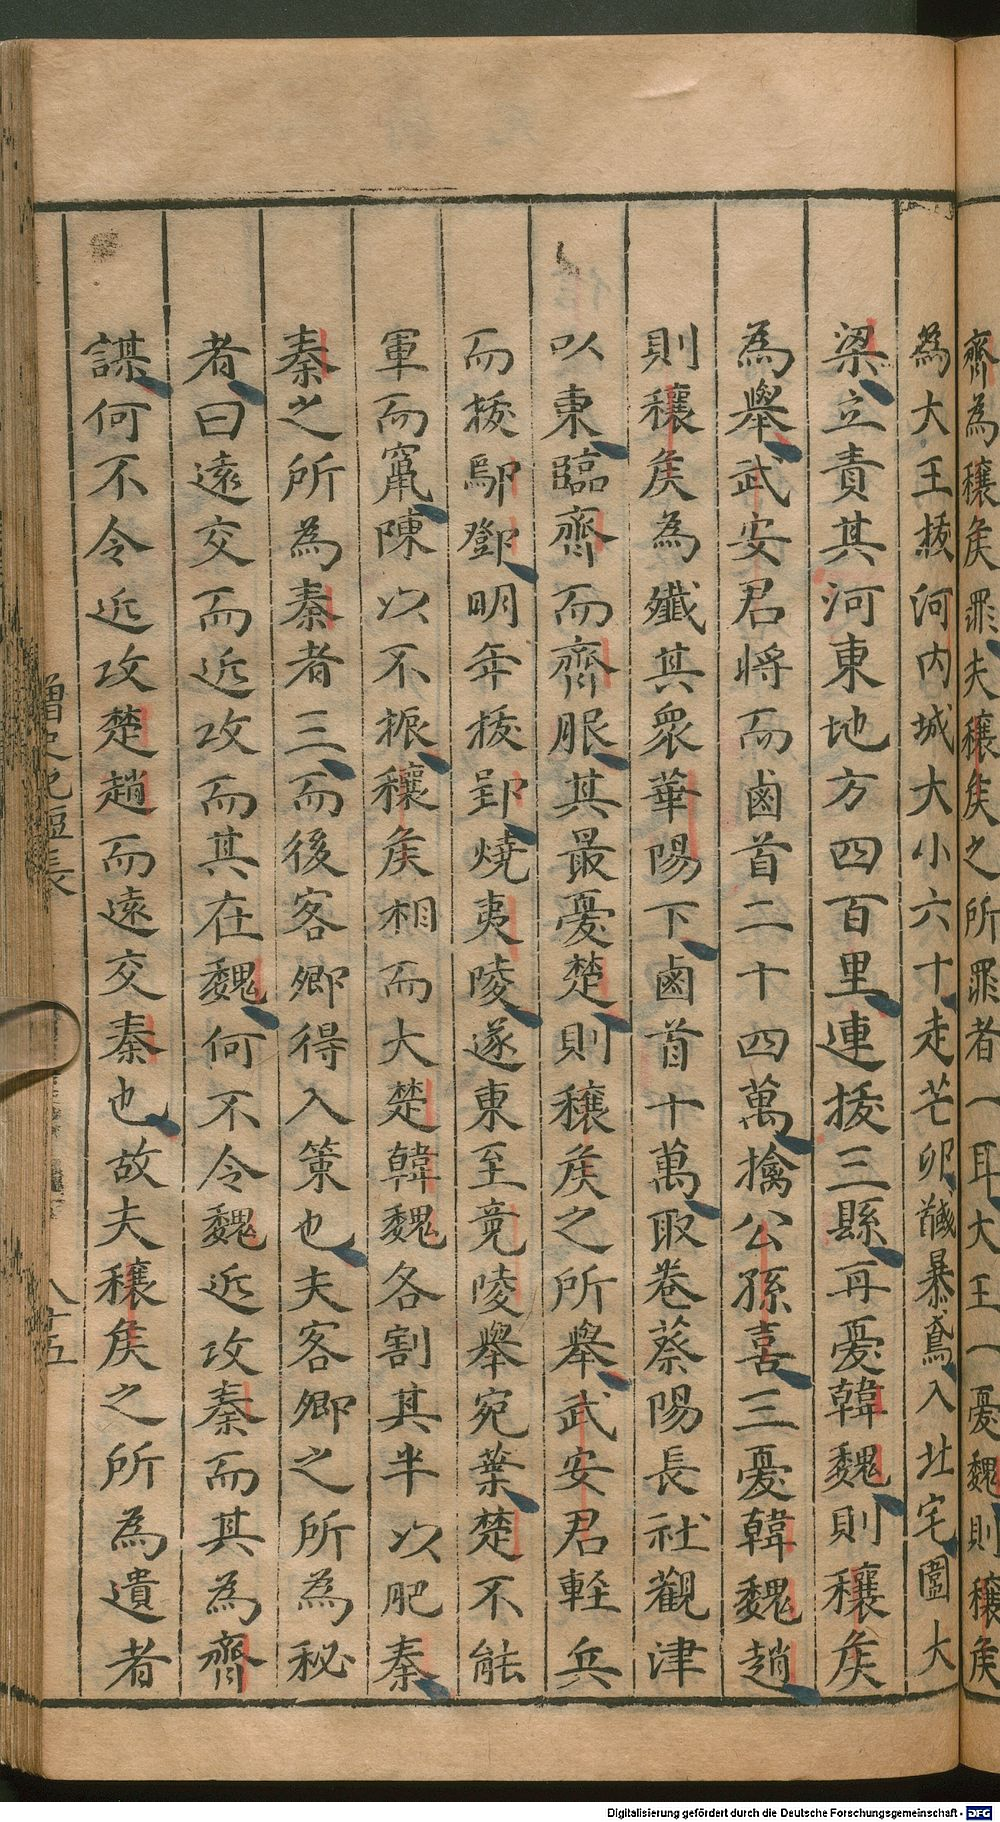 齊為穰矦罪夫穰矦之所罪者一耳大王一憂魏則穰矦
為大王㧞河内城大小六十走芒卯馘暴鳶入北宅圍大
梁立責其河東地方四百里連㧞三縣再憂韓魏則穰矦
為舉武安君將而鹵首二十四萬擒公孫喜三憂韓魏趙
則穰矦為殲其衆華陽下鹵首十萬取卷蔡陽長社觀津
以東臨齊而齊服其最憂楚則穰矦之所舉武安君輕兵
而㧞鄢鄧明年㧞郢燒夷陵遂東至竟陵舉宛葉楚不能
軍而竄陳以不振穰矦相而大楚韓魏各割其半以肥秦
秦之所為秦者三而後客卿得入策也夫客卿之所為秘
者曰遠交而近攻而其在魏何不令魏近攻秦而其為齊
謀何不令近攻楚趙而遠交秦也故夫穰矦之所為遺者
史記短長
八十五
Digitalisierung gefördert durch die Deutsche Forschungsgemeinschaft - DFG